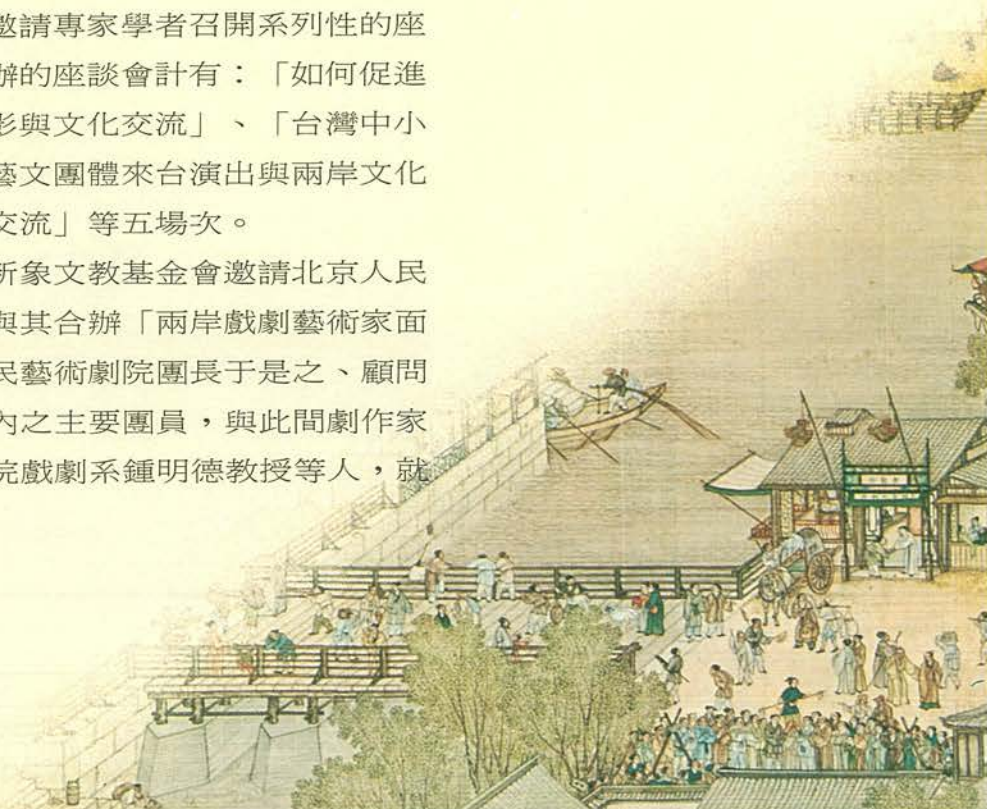 邀請專家學者召開系列性的座
辦的座談會計有：「如何促進
影與文化交流」、「台灣中小
藝文團體來台演出與兩岸文化
交流」等五場次。
新象文教基金會邀請北京人民
與其合辦「兩岸戲劇藝術家面
民藝術劇院團長于是之、顧問
內之主要團員，與此間劇作家
院戲劇系鍾明德教授等人，就